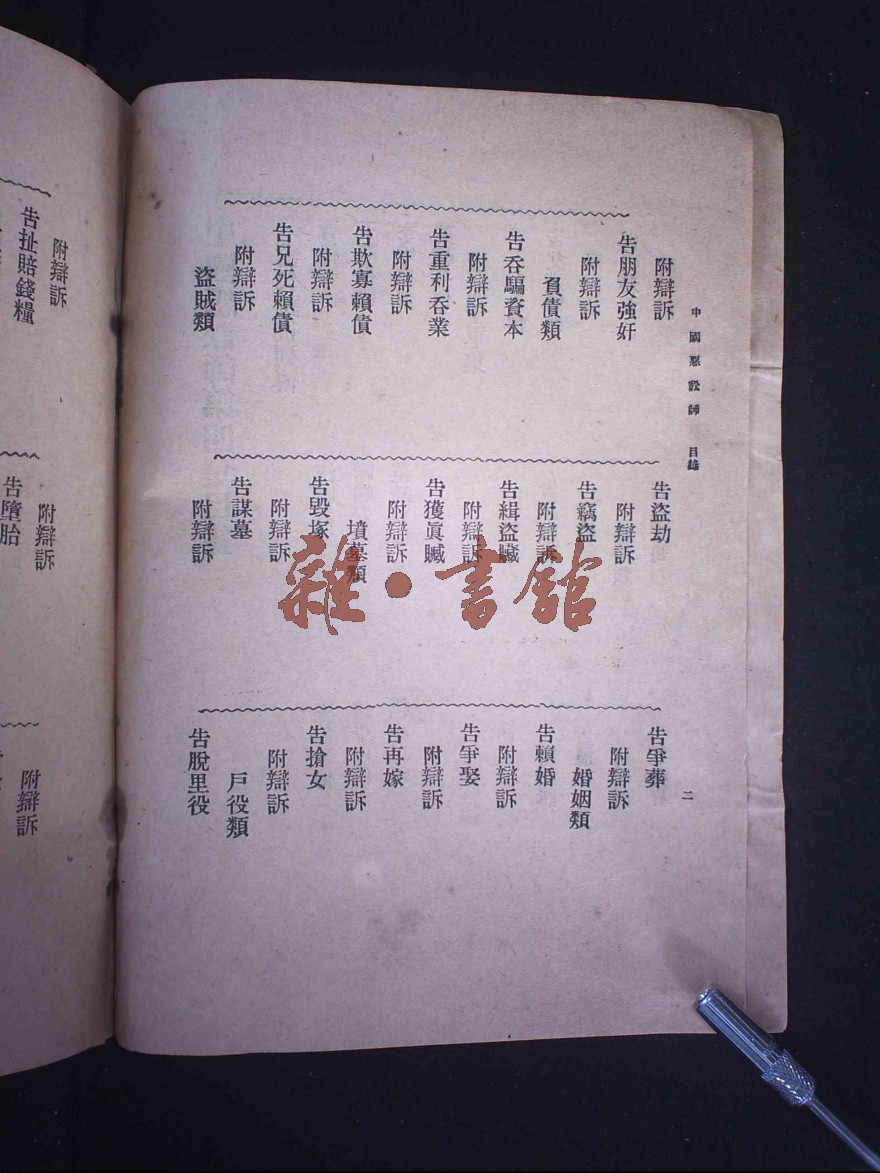 中國惡訟師 目錄
二
附辯訴
告朋友強奸
附辯訴
負債類
告吞騙資本
附辯訴
告重利吞業
附辯訴
告欺寡賴債
附辯訴
告兄死賴債
附辯訴
盜賊類
告盜劫
附辯訴
告竊盜
附辯訴
告緝盜贓
附辯訴
告獲眞贓
附辯訴
墳墓類
告毀塚
附辯訴
告謀墓
附辯訴
告爭葬
附辯訴
婚姻類
告賴婚
附辯訴
告爭娶
附辯訴
告再嫁
附辯訴
告搶女
附辯訴
戶役類
告脫里役
附辯訴
告扯賠錢糧
附辯訴
告墮胎
附辯訴
雜·書館